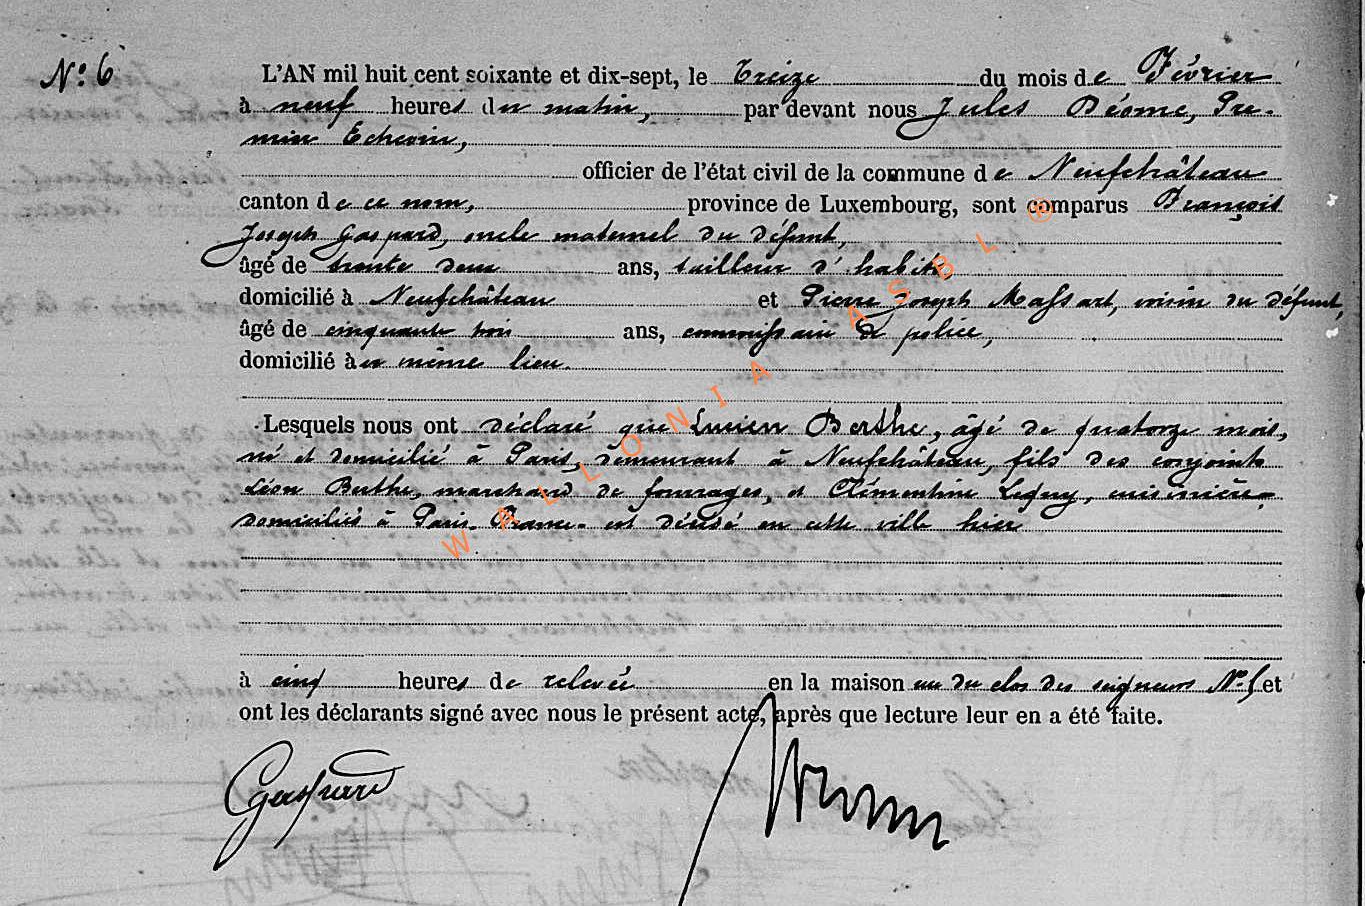 N° 6
L'AN mil huit cent soixante et dix-sept, le Treize du mois de Février
à neuf heures du matin, par devant nous Jules Pre-
mier Echevin,
officier de l'état civil de la commune de Neufchâteau
canton de ce nom, province de Luxembourg, sont comparus François
Joseph Gaspard, oncle maternel du défunt,
âgé de trente deux ans, tailleur d'habits
domicilié à Neufchâteau et Pierre Joseph Massart, voisin du défunt,
âgé de cinquante trois ans, commissaire de police,
domicilié à u même lieu.
Lesquels nous ont déclaré que Lucien Berthe, âgé de quatorze mois,
né et domicilié à Paris, demeurant à Neufchâteau, fils des conjoints
Léon Berthe, marchand de fourrages, et Clémentine cuisinière
domiciliés à Paris France est décédé en cette ville hier
à cinq heures de relevée en la maison rue du clos des seigneurs N° 5 et
ont les déclarants signé avec nous le présent acte, après que lecture leur en a été faite.
Gaspard
WALLONIA ASBL ®